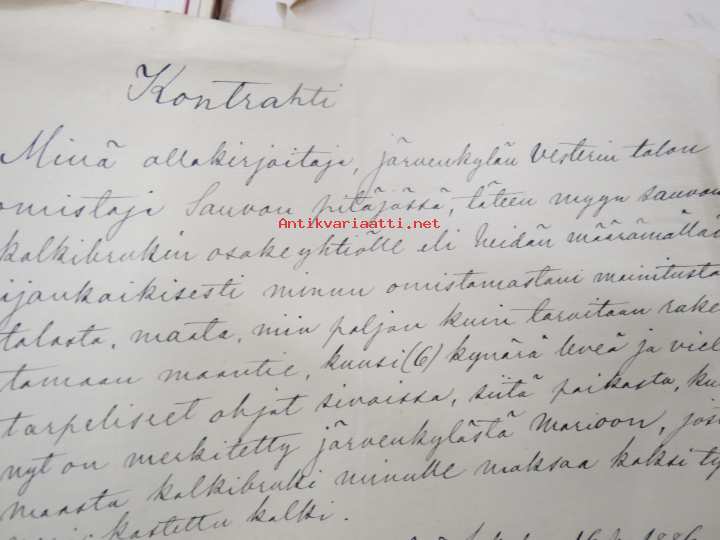 Kontrahti
Minä allakirjoitaja, järvenkylän Vesterin talon
omistaja Sauvon pitäjässä, täten myyn sauvon
Antikvariaatti.net
kalkibrukin osakeyhtiölle eli heidän määrämällän
ijankaikisesti minun omistamastani mainitusta
talosta, maata, niin paljon kuin tarvitaan rake
tamaan maantie, kuusi (6) kynärä leveä ja viel
tarpeliset ohjat sivoissa, siitä paikasta, ku
nyt on merkitetty järvenkylästä marioon, jos
maasta kalkibruki minulle maksaa kaksi ty
kastettu kalki.
1886